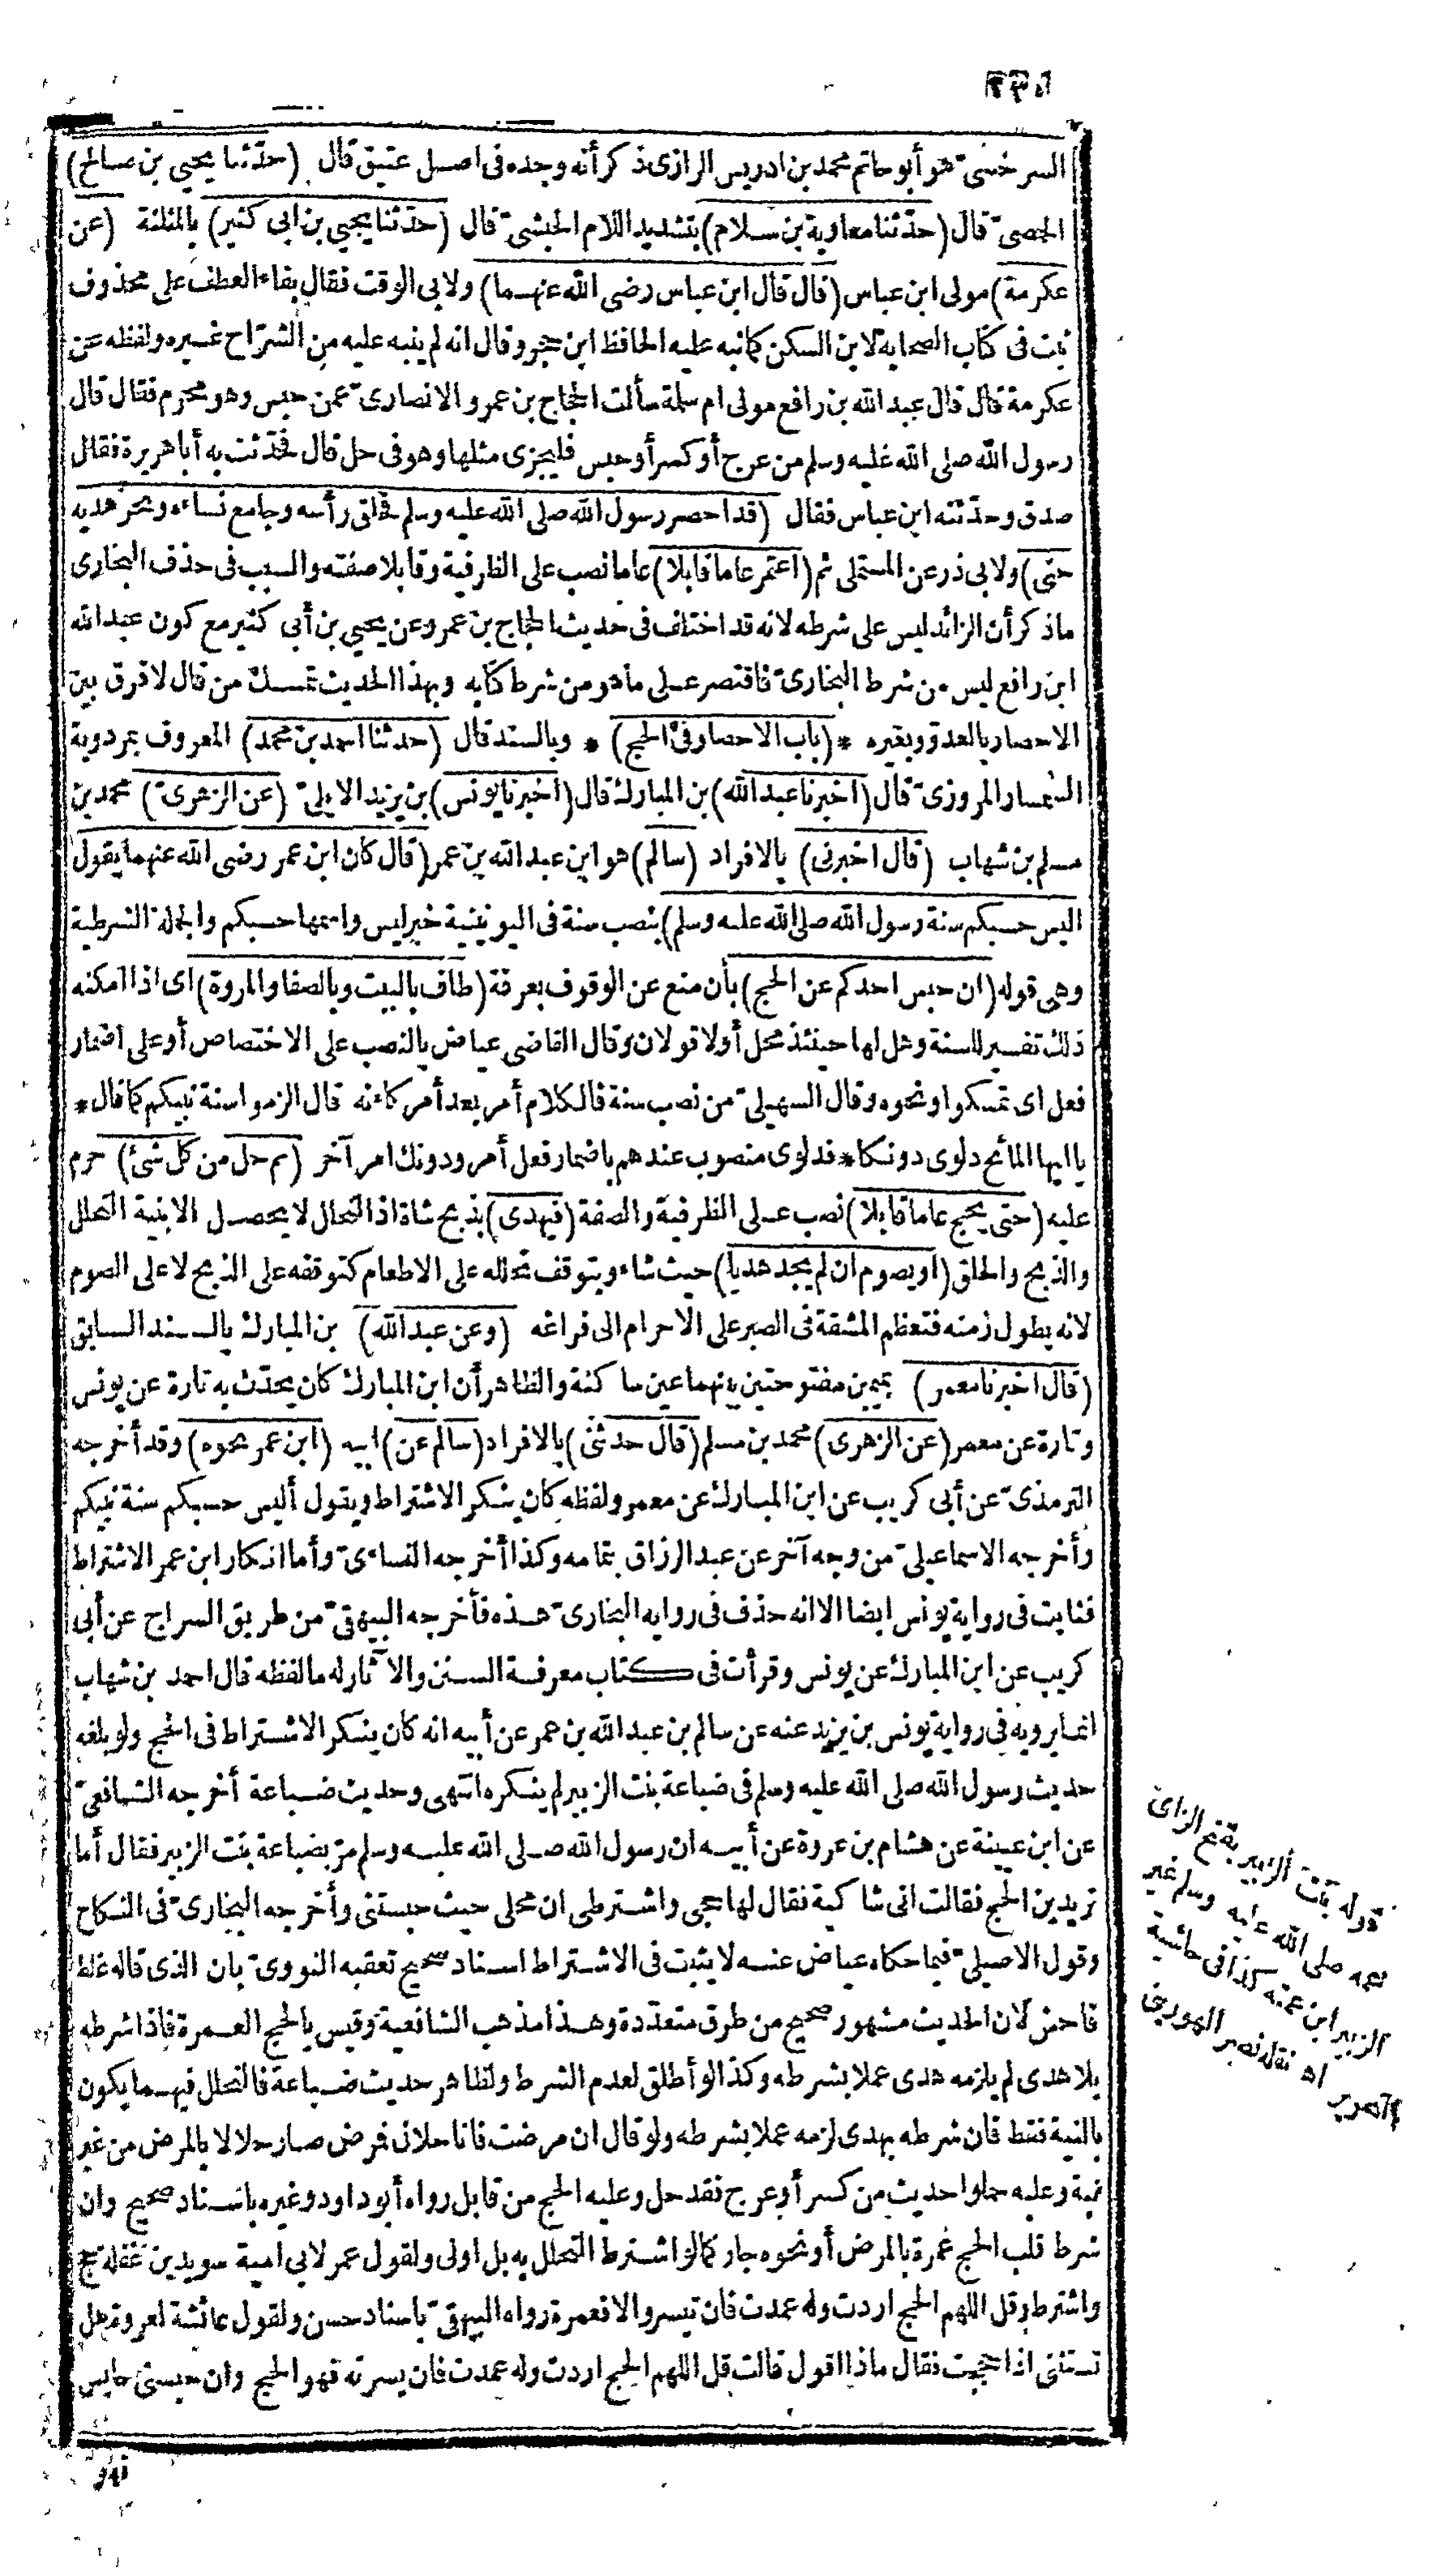 السرخسىّ هو أبو حاتم محمد بن ادريس الرازى ذكر أنه وجده فى اصل عتيق قال (حدّثنا يحيى بن صالح)
الحمصىّ قال (حدّثنا معاوية بن سلام) بتشديد اللام الحبشىّ قال (حدّثنا يحيى بن ابى كثير) بالمثلثة (عن
عكرمة) مولى ابن عباس (قال قال ابن عباس رضى الله عنهما) ولابى الوقت فقال بفاء العطف على محذوف
ثبت فى كتاب الصحابة لابن السكن كما نبه عليه الحافظ ابن حجر وقال انه لم ينبه عليه من الشرّاح غيره ولفظه عن
عكرمة قال قال عبد الله بن رافع مولى ام سلمة سألت الحجاج بن عمرو الانصارىّ عمن حبس وهو محرم فقال قال
رسول الله صلى الله عليه وسلم من عرج أو كسر أو حبس فليجزى مثلها وهو فى حل قال فحدّثت به أبا هريرة فقال
صدق وحدّثته ابن عباس فقال (قد احصر رسول الله صلى الله عليه وسلم فحلق رأسه وجامع نساءه ونحر هديه
حتى) ولابى ذر عن المستملى ثم (اعتمر عاما قابلا) عاما نصب على الظرفية وقابلا صفته والسبب فى حذف البخارى
ما ذكر أن الزائد ليس على شرطه لانه قد اختلف فى حديث الحجاج بن عمرو عن يحيى بن أبى كثير مع كون عبد الله
ابن رافع ليس من شرط البخارىّ فاقتصر على ما هو من شرط كتابه وبهذا الحديث تمسك من قال لا فرق بين
الاحصار بالعدوّ وبغيره * (باب الاحصار فى الحج) * وبالسند قال (حدثنا احمد بن محمد) المعروف بمردوية
السمسار المروزىّ قال (اخبرنا عبد الله) بن المبارك قال (اخبرنا يونس) بن يزيد الايلىّ (عن الزهرىّ) محمد بن
مسلم بن شهاب (قال اخبرنى) بالافراد (سالم) هو ابن عبد الله بن عمر (قال كان ابن عمر رضى الله عنهما يقول
اليس حسبكم سنة رسول الله صلى الله عليه وسلم) بنصب سنة فى اليونينية خبر ليس واسمها حسبكم والجملة الشرطية
وهى قوله (ان حبس احدكم عن الحج) بأن منع عن الوقوف بعرفة (طاف بالبيت وبالصفا والمروة) اى اذا امكنه
ذلك تفسير للسنة وهل لها حينئذ محل أولا قولان وقال القاضى عياض بالنصب على الاختصاص أو على اضمار
فعل اى تمسكوا ونحوه وقال السهيلىّ من نصب سنة فالكلام أمر بعد أمر كأنه قال الزموا سنة نبيكم كما قال *
يا ايها المائح دلوى دونكا * فدلوى منصوب عندهم باضمار فعل أمر ودونك امر آخر (ثم حل من كل شئ) حرم
عليه (حتى يحج عاما قابلا) نصب على الظرفية والصفة (فيهدى) بذبح شاة اذ التحلل لا يحصل الا بنية التحلل
والذبح والحلق (او يصوم ان لم يجد هديا) حيث شاء ويتوقف تحلله على الاطعام كتوقفه على الذبح لا على الصوم
لانه يطول زمنه فتعظم المشقة فى الصبر على الاحرام الى فراغه (وعن عبد الله) بن المبارك بالسند السابق
(قال اخبرنا معمر) بميمين مفتوحتين بينهما عين ساكنة والظاهر أن ابن المبارك كان يحدّث به تارة عن يونس
وتارة عن معمر (عن الزهرى) محمد بن مسلم (قال حدثنى) بالافراد (سالم عن) ابيه (ابن عمر نحوه) وقد أخرجه
الترمذىّ عن أبى كريب عن ابن المبارك عن معمر ولفظه كان ينكر الاشتراط ويقول أليس حسبكم سنة نبيكم
وأخرجه الاسماعيلىّ من وجه آخر عن عبد الرزاق بتمامه وكذا أخرجه النساءىّ وأما انكار ابن عمر الاشتراط
فثابت فى رواية يونس ايضا الا انه حذف فى رواية البخارىّ هذه فأخرجه البيهقىّ من طريق السراج عن أبى
كريب عن ابن المبارك عن يونس وقرأت فى كتاب معرفة السنن والآثار له ما لفظه قال احمد بن شهاب
انما يرويه فى رواية يونس بن يزيد عنه عن سالم بن عبد الله بن عمر عن أبيه انه كان ينكر الاشتراط فى الحج ولو بلغه
حديث رسول الله صلى الله عليه وسلم فى ضباعة بنت الزبير لم ينكره انتهى وحديث ضباعة أخرجه الشافعىّ
عن ابن عيينة عن هشام بن عروة عن أبيه ان رسول الله صلى الله عليه وسلم مرّ بضباعة بنت الزبير فقال أما
تريدين الحج فقالت انى شاكية فقال لها حجى واشترطى ان محلى حيث حبستنى وأخرجه البخارىّ فى النكاح
وقول الاصيلىّ فيما حكاه عياض عنه لا يثبت فى الاشتراط اسناد صحيح تعقبه النووىّ بان الذى قاله غلط
فاحش لان الحديث مشهور صحيح من طرق متعدّدة وهذا مذهب الشافعية وقيس بالحج العمرة فاذا شرطه
بلا هدى لم يلزمه هدى عملا بشرطه وكذا لو أطلق لعدم الشرط ولظاهر حديث ضباعة فالتحلل فيهما يكون
بالنية فقط فان شرطه بهدى لزمه عملا بشرطه ولو قال ان مرضت فانا حلال فمرض صار حلالا بالمرض من غير
نية وعليه حملوا حديث من كسر أو عرج فقد حل وعليه الحج من قابل رواه أبو داود وغيره باسناد صحيح وان
شرط قلب الحج عمرة بالمرض أو نحوه جاز كما لو اشترط التحلل به بل اولى ولقول عمر لابى امية سويد بن غفلة حج
واشترط وقل اللهم الحج اردت وله عمدت فان تيسر والا فعمرة رواه البيهقىّ باسناد حسن ولقول عائشة لعروة هل
تستثنى اذا حججت فقال ماذا اقول قالت قل اللهم الحج اردت وله عمدت فان يسرته فهو الحج وان حبسنى حابس
قوله بنت الزبير بفتح الزاى
عمه صلى الله عليه وسلم غير
الزبير ابن عمته كذا فى حاشية
اه نقله نصر الهورينى